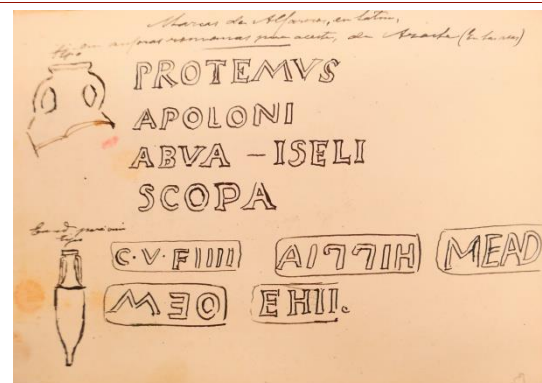 Marcas de Alfareros, en latin,
en anforas romanas para aceite, de Arache (
tipo
PROTEMVS
APOLONI
ABVA – ISELI
SCOPA
tipo
C·V·FIIII AIꓶꓶIH MEAD
MEO EHII.